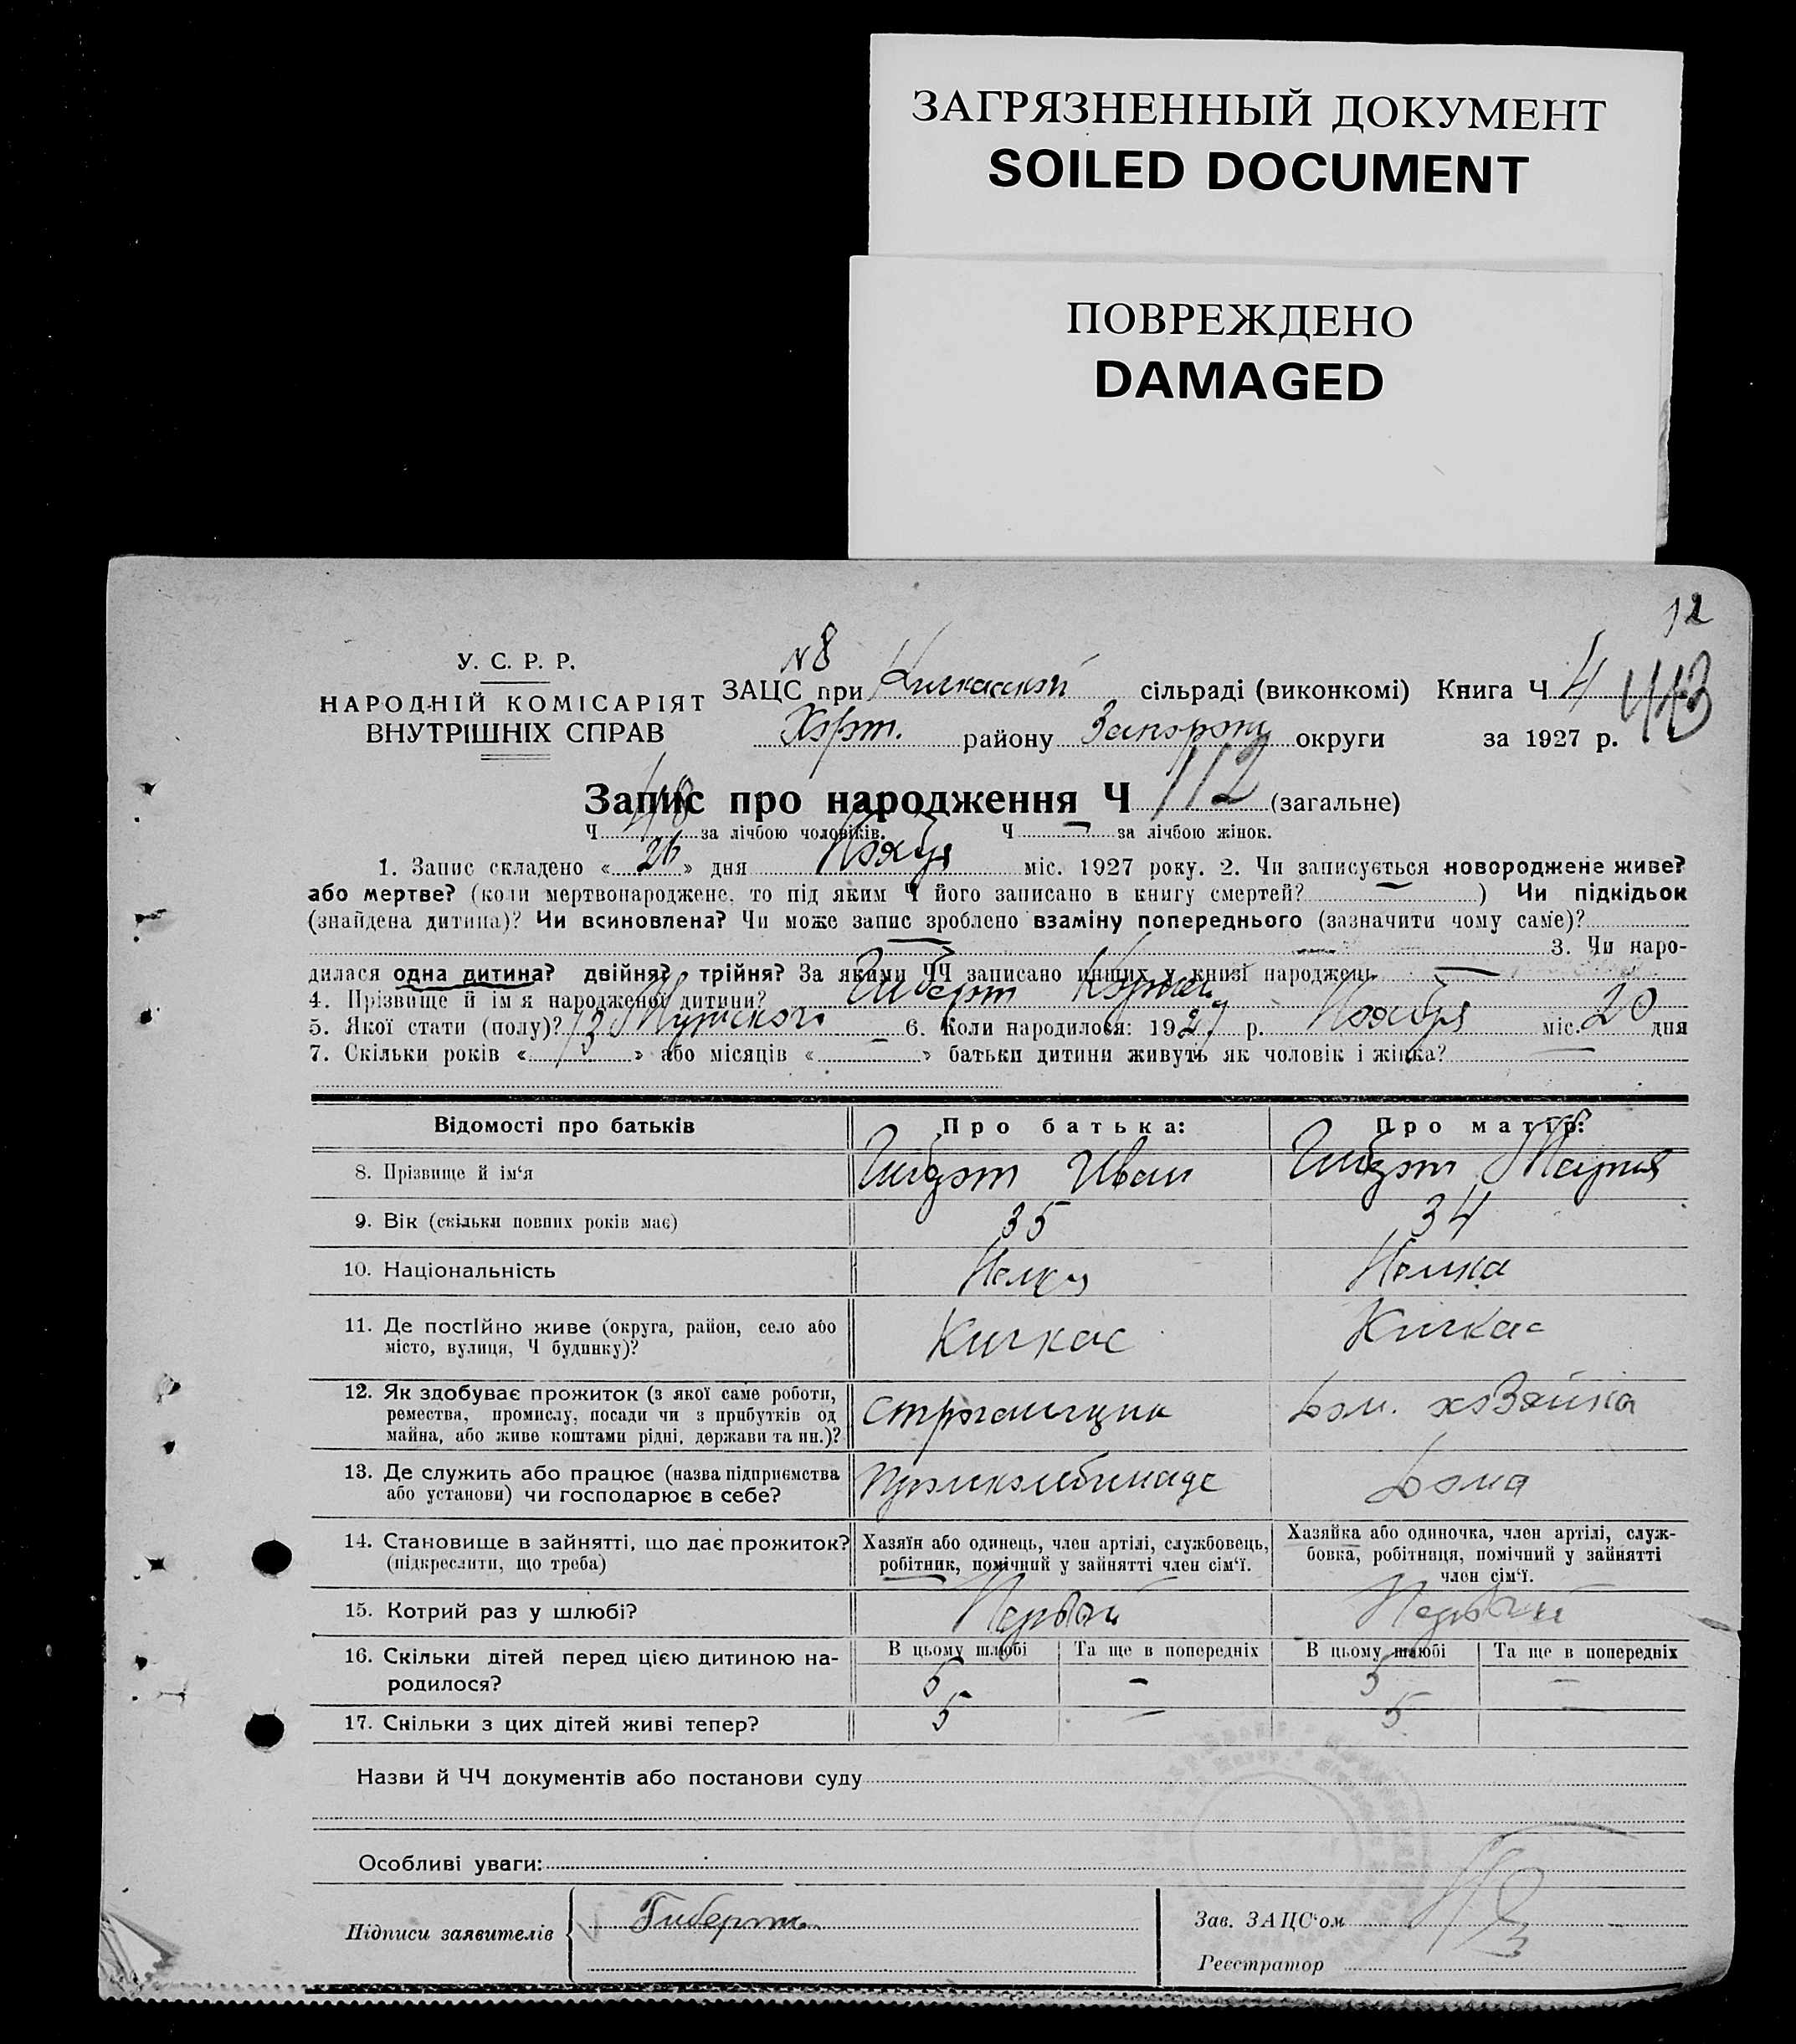 ЗАГРЯЗНЕННЫЙ ДОКУМЕНТ
SOILED DOCUMENT
ПОВРЕЖДЕНО
DAMAGED
12
У. С. Р. Р.
НАРОДНІЙ КОМІСАРІЯТ
ВНУТРІШНІХ СПРАВ
N 8
ЗАЦС при Кичкасской сільраді (виконкомі) Книга Ч 4
443
Хорт. району Запорожу округи за 1927 р.
Запис про народження Ч 112 (загальне)
Ч за лічбою чоловіків. Ч — за лічбою жінок.
1. Запис складено « 26 » дня Ноября міс. 1927 року. 2. Чи записується новороджене живе?
або мертве? (коли мертвонароджене, то під яким Ч його записано в книгу смертей? — ) Чи підкідьок
(знайдена дитина)? Чи всиновлена? Чи може запис зроблено взаміну попереднього (зазначити чому саме)?
3. Чи наро-
дилася одна дитина? двійня? трійня? За якими ЧЧ записано инших у книзі народжень —
4. Прізвище й ім'я народженої дитини? Гиберт Корней
5. Якої стати (полу)? Мужского 6. Коли народилося: 1927 р. Ноября міс. 20 дня
7. Скільки років « 13 » або місяців « — » батьки дитини живуть як чоловік і жінка? —
Відомості про батьків
Про батька:
Про матір:
8. Прізвище й ім'я
Гиберт Иван
Гиберт Мария
9. Вік (скільки повних років має)
35
34
10. Національність
Немец
Немка
11. Де постійно живе (округа, район, село або
місто, вулиця, Ч будинку)?
Кичкас
Кичкас
12. Як здобуває прожиток (з якої саме роботи,
ремества, промислу, посади чи з прибутків од
майна, або живе коштами рідні, держави та ин.)?
Строгальщик
Дом. хозяйка
13. Де служить або працює (назва підприємства
або установи) чи господарює в себе?
Промкомбинаде
Дома
14. Становище в зайнятті, що дає прожиток?
(підкреслити, що треба)
Хазяїн або одинець, член артілі, службовець,
робітник, помічний у зайнятті член сім'ї.
Хазяйка або одиночка, член артілі, служ-
бовка, робітниця, помічний у зайнятті
член сім'ї.
15. Котрий раз у шлюбі?
Первый
Первый
16. Скільки дітей перед цією дитиною на-
родилося?
В цьому шлюбі Та ще в попередніх В цьому шлюбі Та ще в попередніх
5 — 5 —
17. Скільки з цих дітей живі тепер?
5 — 5 —
Назви й ЧЧ документів або постанови суду
Особливі уваги:
Підписи заявителів
Гиберт
Зав. ЗАЦС'ом
Реєстратор